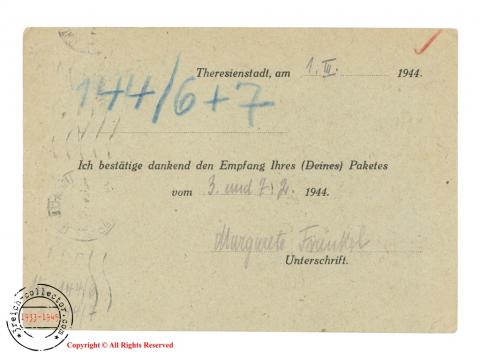 Theresienstadt, am 1. III. 1944.
144/6+7
Ich bestätige dankend den Empfang Ihres (Deines) Paketes
vom 3. und 7. 2. 1944.
Margarete Fränkl
Unterschrift.
144/6
7
3reich-collector.com
1933-1945
Copyright © All Rights Reserved